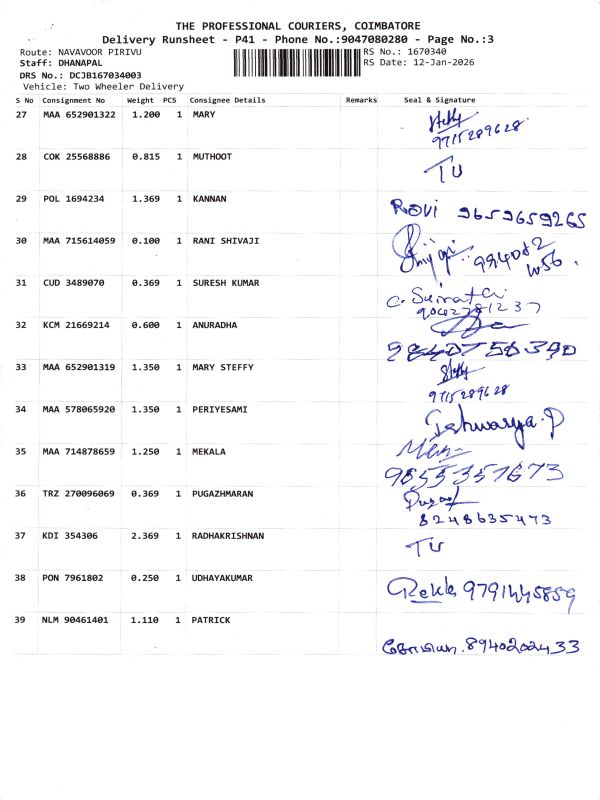 THE PROFESSIONAL COURIERS, COIMBATORE
Delivery Runsheet - P41 - Phone No.:9047080280 - Page No.:3
Route: NAVAVOOR PIRIVU RS No.: 1670340
Staff: DHANAPAL RS Date: 12-Jan-2026
DRS No.: DCJB167034003
Vehicle: Two Wheeler Delivery
S No Consignment No Weight PCS Consignee Details Remarks Seal & Signature
27 MAA 652901322 1.200 1 MARY
9715289628
28 COK 25568886 0.815 1 MUTHOOT
TU
29 POL 1694234 1.369 1 KANNAN
Rovi 9659659265
30 MAA 715614059 0.100 1 RANI SHIVAJI
31 CUD 3489070 0.369 1 SURESH KUMAR
32 KCM 21669214 0.600 1 ANURADHA
33 MAA 652901319 1.350 1 MARY STEFFY
Steffy
9715289628
34 MAA 578065920 1.350 1 PERIYESAMI
Ishwarya.P
35 MAA 714878659 1.250 1 MEKALA
36 TRZ 270096069 0.369 1 PUGAZHMARAN
8248635473
37 KDI 354306 2.369 1 RADHAKRISHNAN
TU
38 PON 7961802 0.250 1 UDHAYAKUMAR
Rekha 9791445859
39 NLM 90461401 1.110 1 PATRICK
8940202433